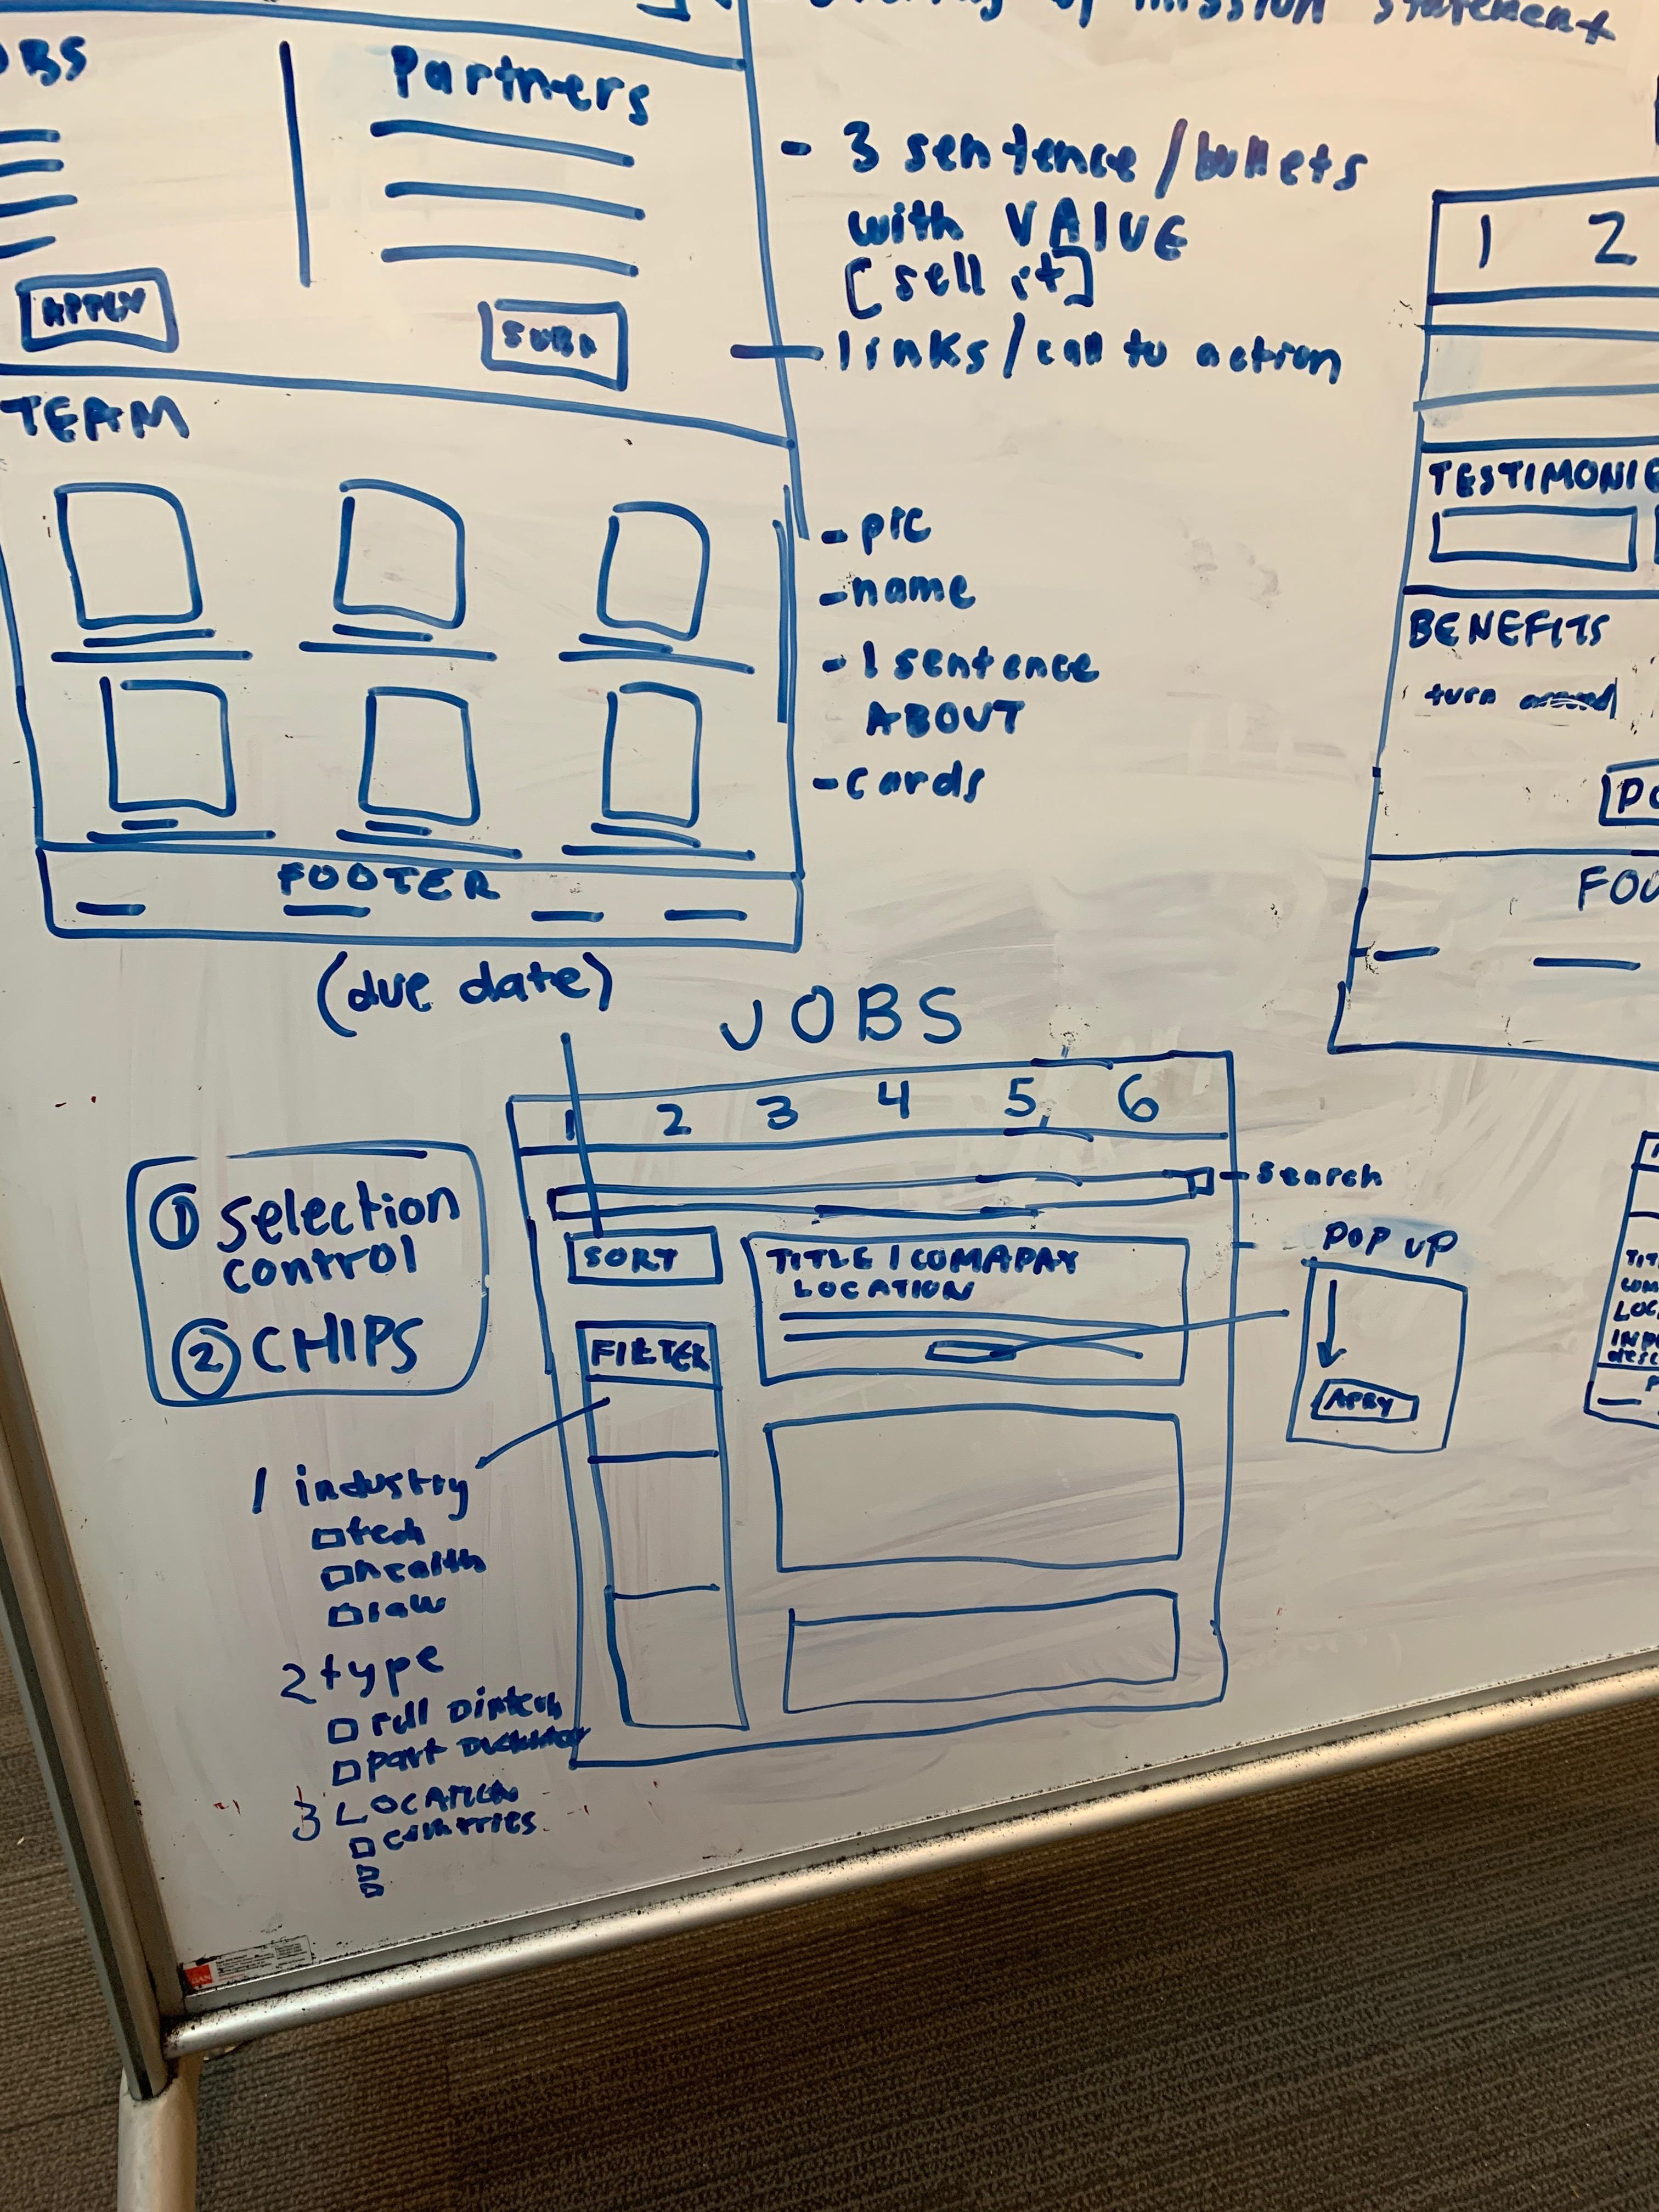 mission statement
OBS
Partners
- 3 sentence/bullets
with VALUE
[sell it]
- links/call to action
TEAM
- pic
- name
- 1 sentence
ABOUT
- cards
FOOTER
(due date)
1 2
TESTIMONIE
BENEFITS
turn around
FOO
JOBS
1 2 3 4 5 6
- search
SORT
TITLE / COMAPAY
LOCATION
FILTER
① selection
control
② CHIPS
POP UP
APPLY
1 industry
tech
health
law
2 type
full
part
3 LOCATION
countries
TIT
COM
LOC
desc